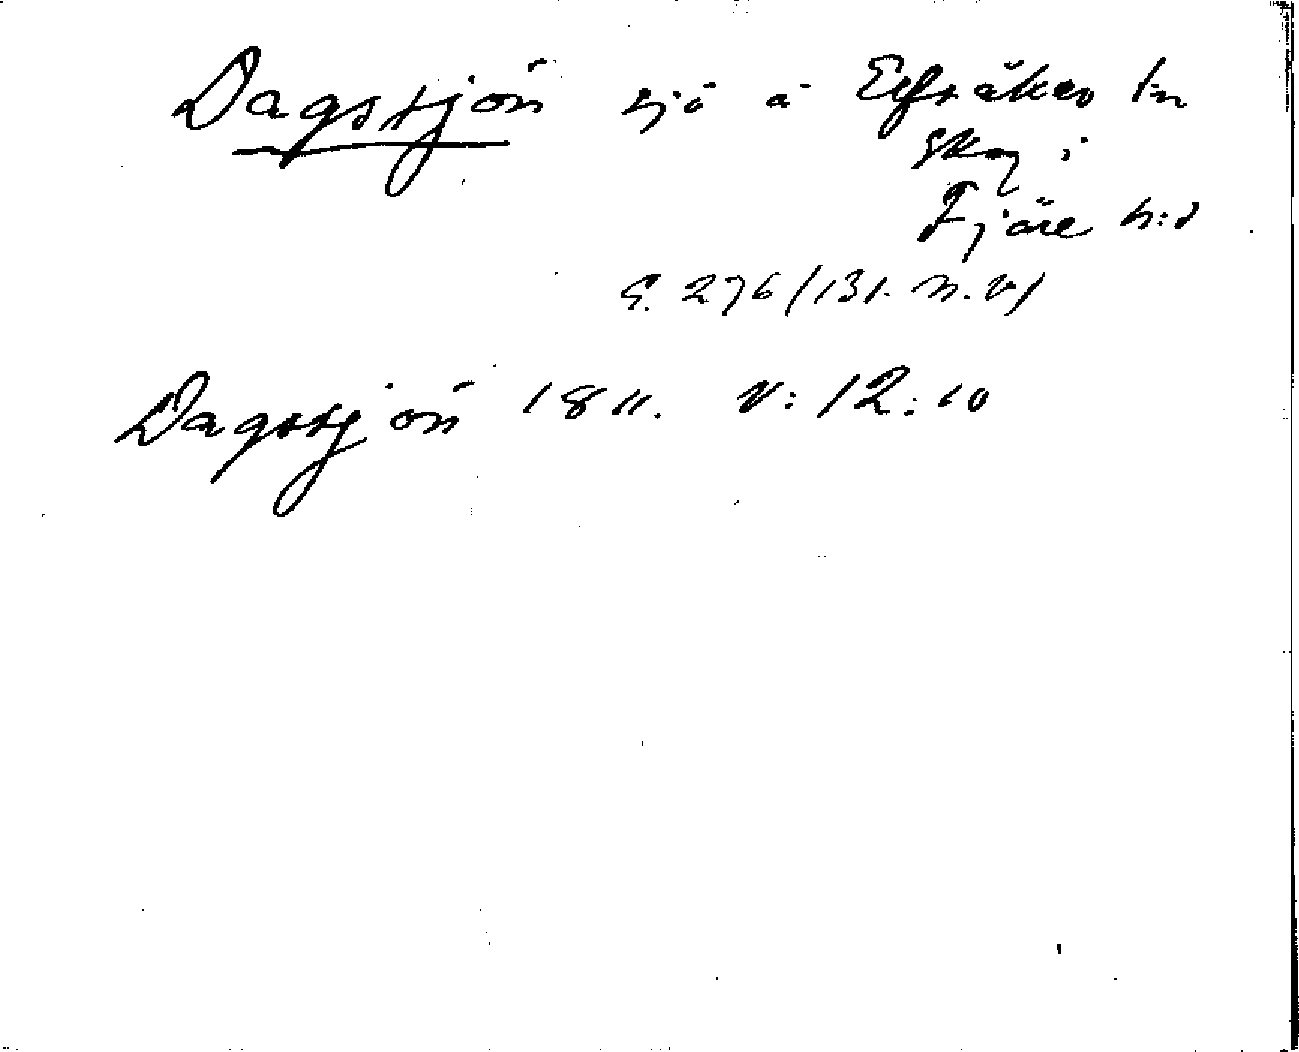 Dagssjön sjö å Elfsåker In
skog i
Fjäre h:d
S. 276/131. N.V.
Dagssjön 1811. V: 12: 10